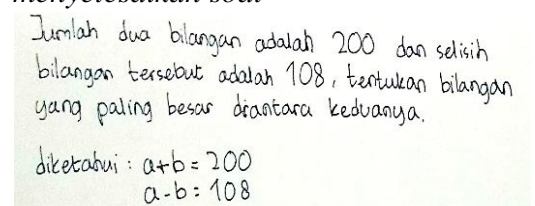 menyelesaikan soal
Jumlah dua bilangan adalah 200 dan selisih
bilangan tersebut adalah 108, tentukan bilangan
yang paling besar diantara keduanya.
diketahui : a+b = 200
a-b = 108